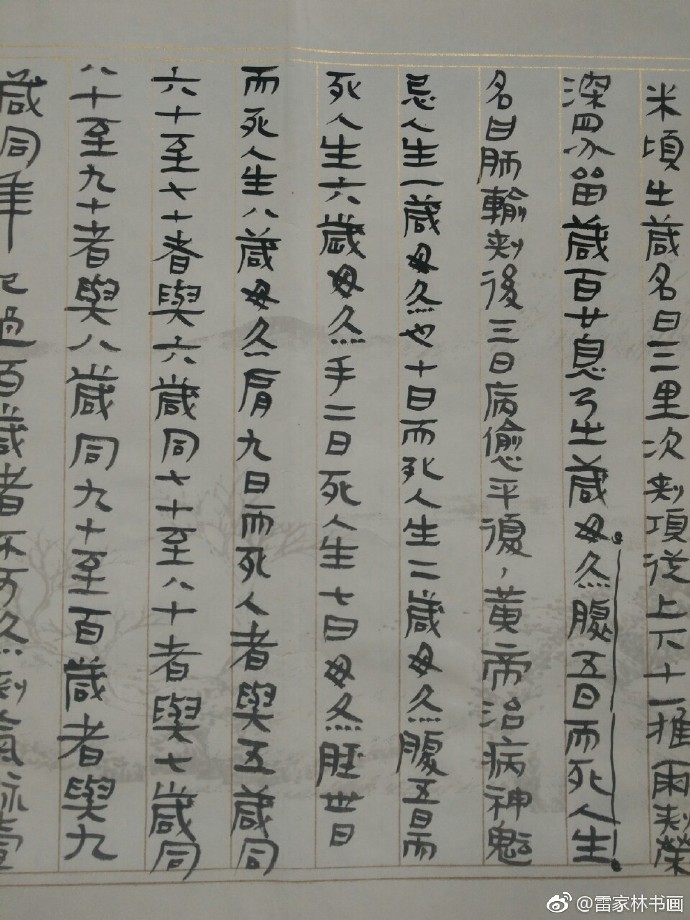 米頃生歲名曰三里次刾項從上下十一椎兩刾榮
深四分留歲百廿息乃生歲毋灸腹五日而死人生
名曰肺輸刾後三日病愈平復，黃帝治病神魁
忌人生一歲毋灸也十日而死人生二歲毋灸腹五日而
死人生六歲毋灸手二日死人生七日毋灸胫卅日
而死人生八歲毋灸肩九日而死人者與五歲同
六十至七十者與六歲同七十至八十者與七歲同
八十至九十者與八歲同九十至百歲者與九
歲同年已過百歲者不可灸刾氣脉壹
@雷家林书画